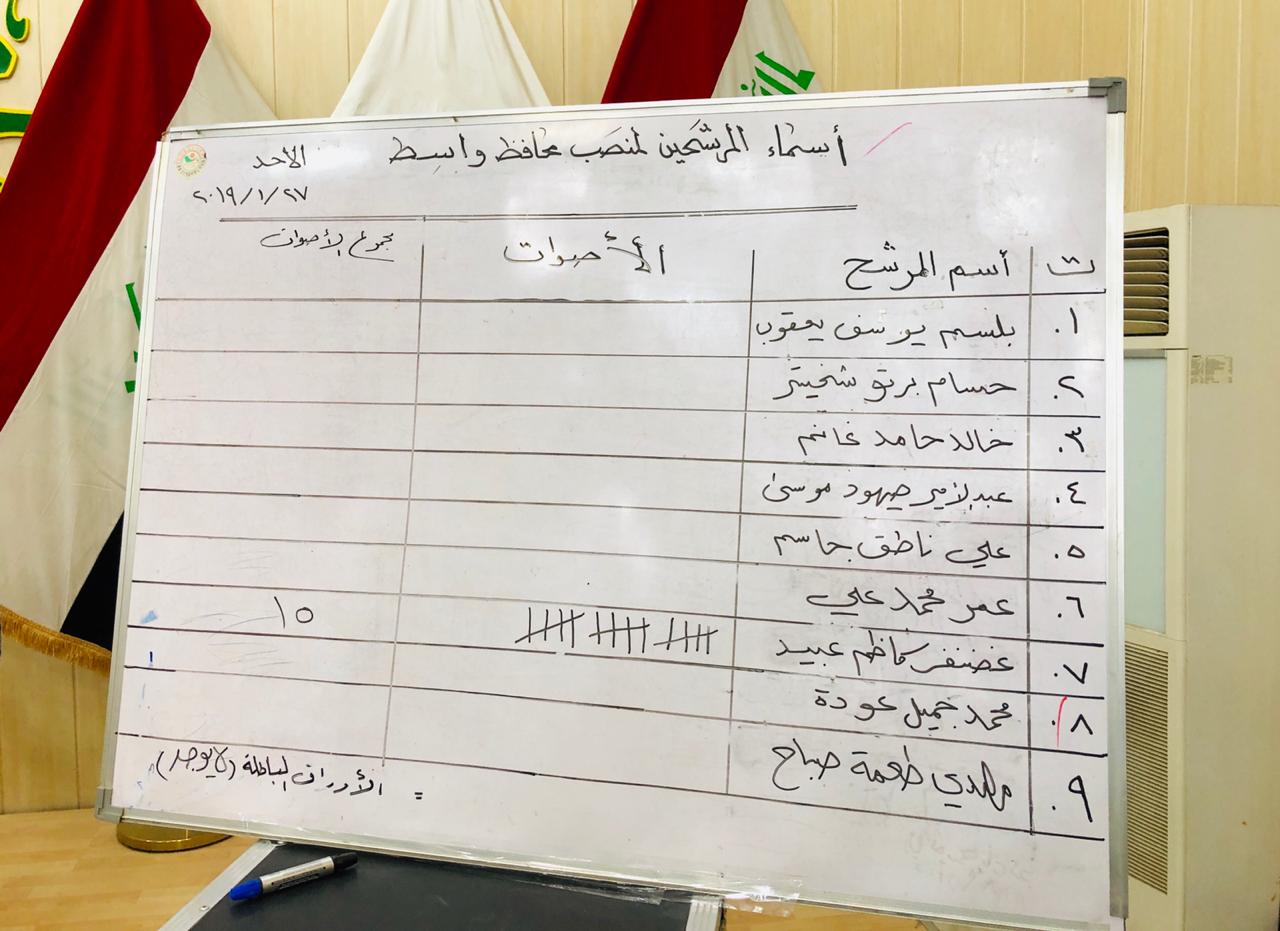 أسماء المرشحين لمنصب محافظ واسط
الاحد
٢٠١٩/١/٢٧
ت أسم المرشح الأصوات مجموع الأصوات
١. بلسم يوسف يعقوب
٢. حسام برتو شخيتر
٣. خالد حامد غانم
٤. عبدالامير صيهود موسى
٥. علي ناطق جاسم
٦. عمر محمد علي
٧. غضنفر كاظم عبيد ١٥
٨. محمد جميل عودة
٩. مهدي طعمة صباح
= الأوراق الباطلة (لا يوجد)